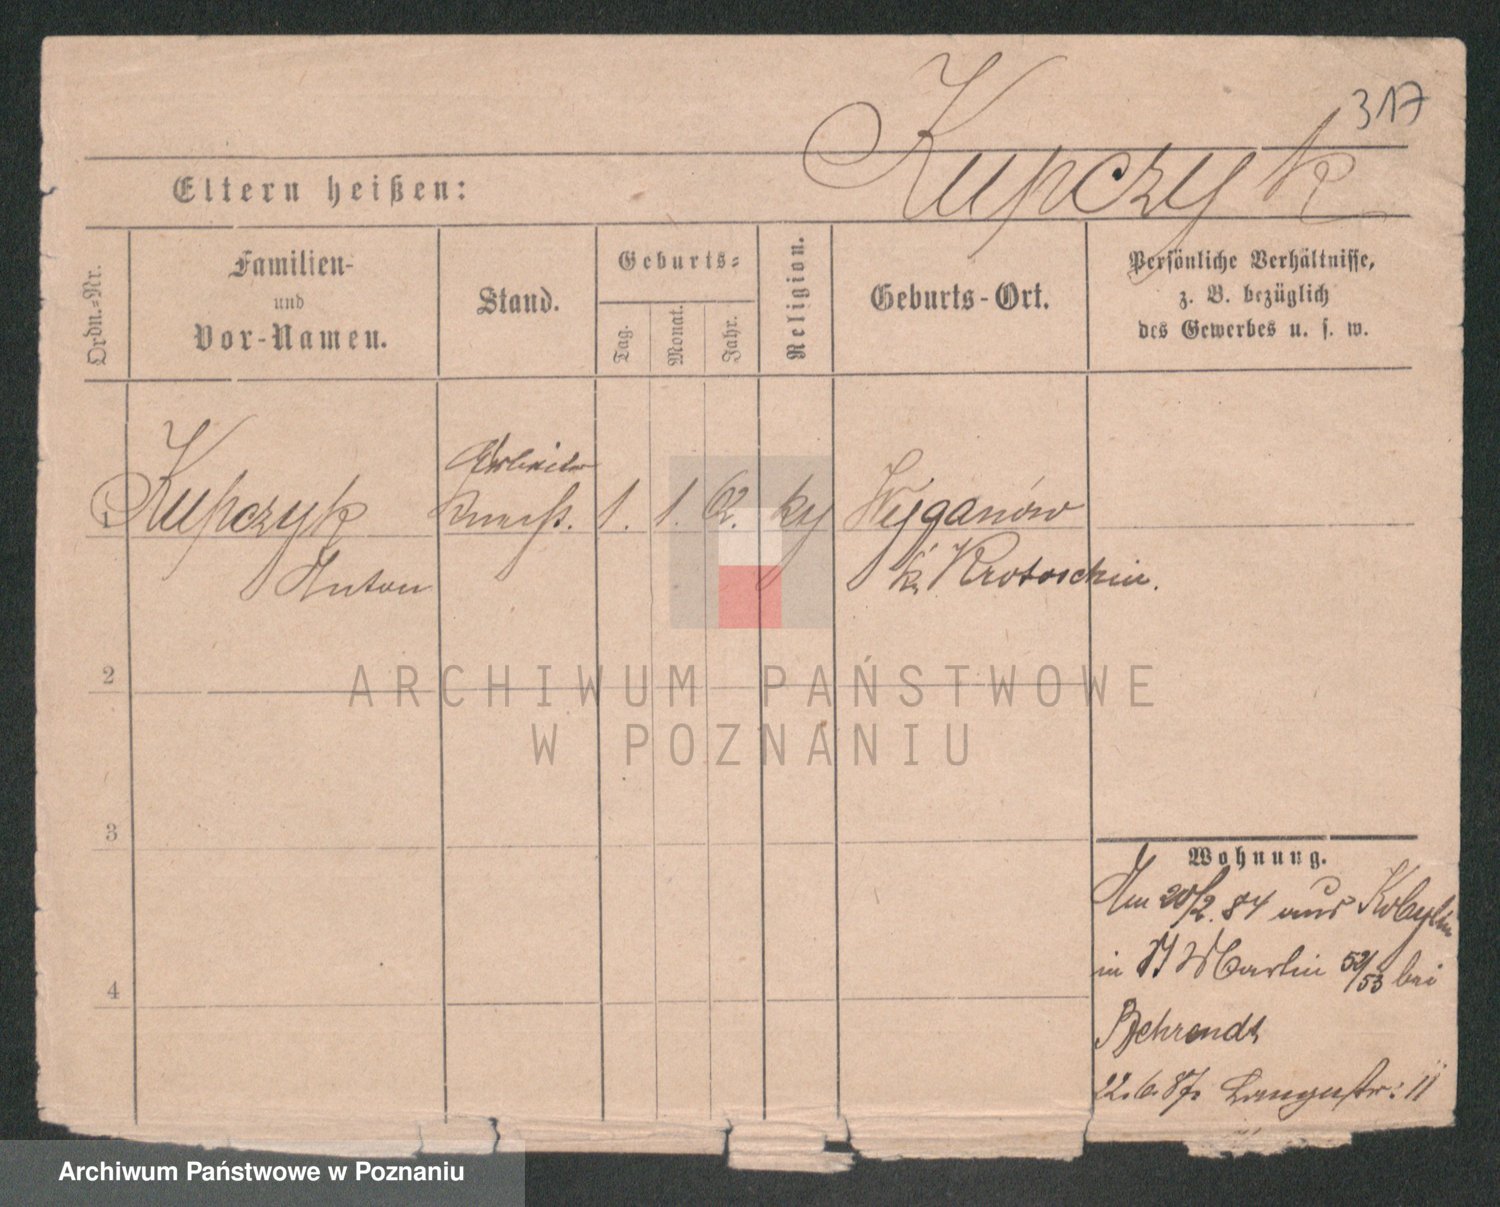 317
Kupczyk
Eltern heißen:
Ordn.-Nr.
Familien-
und
Vor-Namen.
Stand.
Geburts-
Tag.
Monat.
Jahr.
Religion.
Geburts-Ort.
Persönliche Verhältnisse,
z. B. bezüglich
des Gewerbes u. s. w.
Arbeiter
1 Kupczyk 1. 1. 62. Wyganów
Anton Kr Krotoschin.
2
3
4
Wohnung.
Am 20/2. 84 aus Kobylin
in St Martin 52/53 bei
Behrendt
22.6.87. Langestr: 11
ARCHIWUM PAŃSTWOWE
W POZNANIU
Archiwum Państwowe w Poznaniu